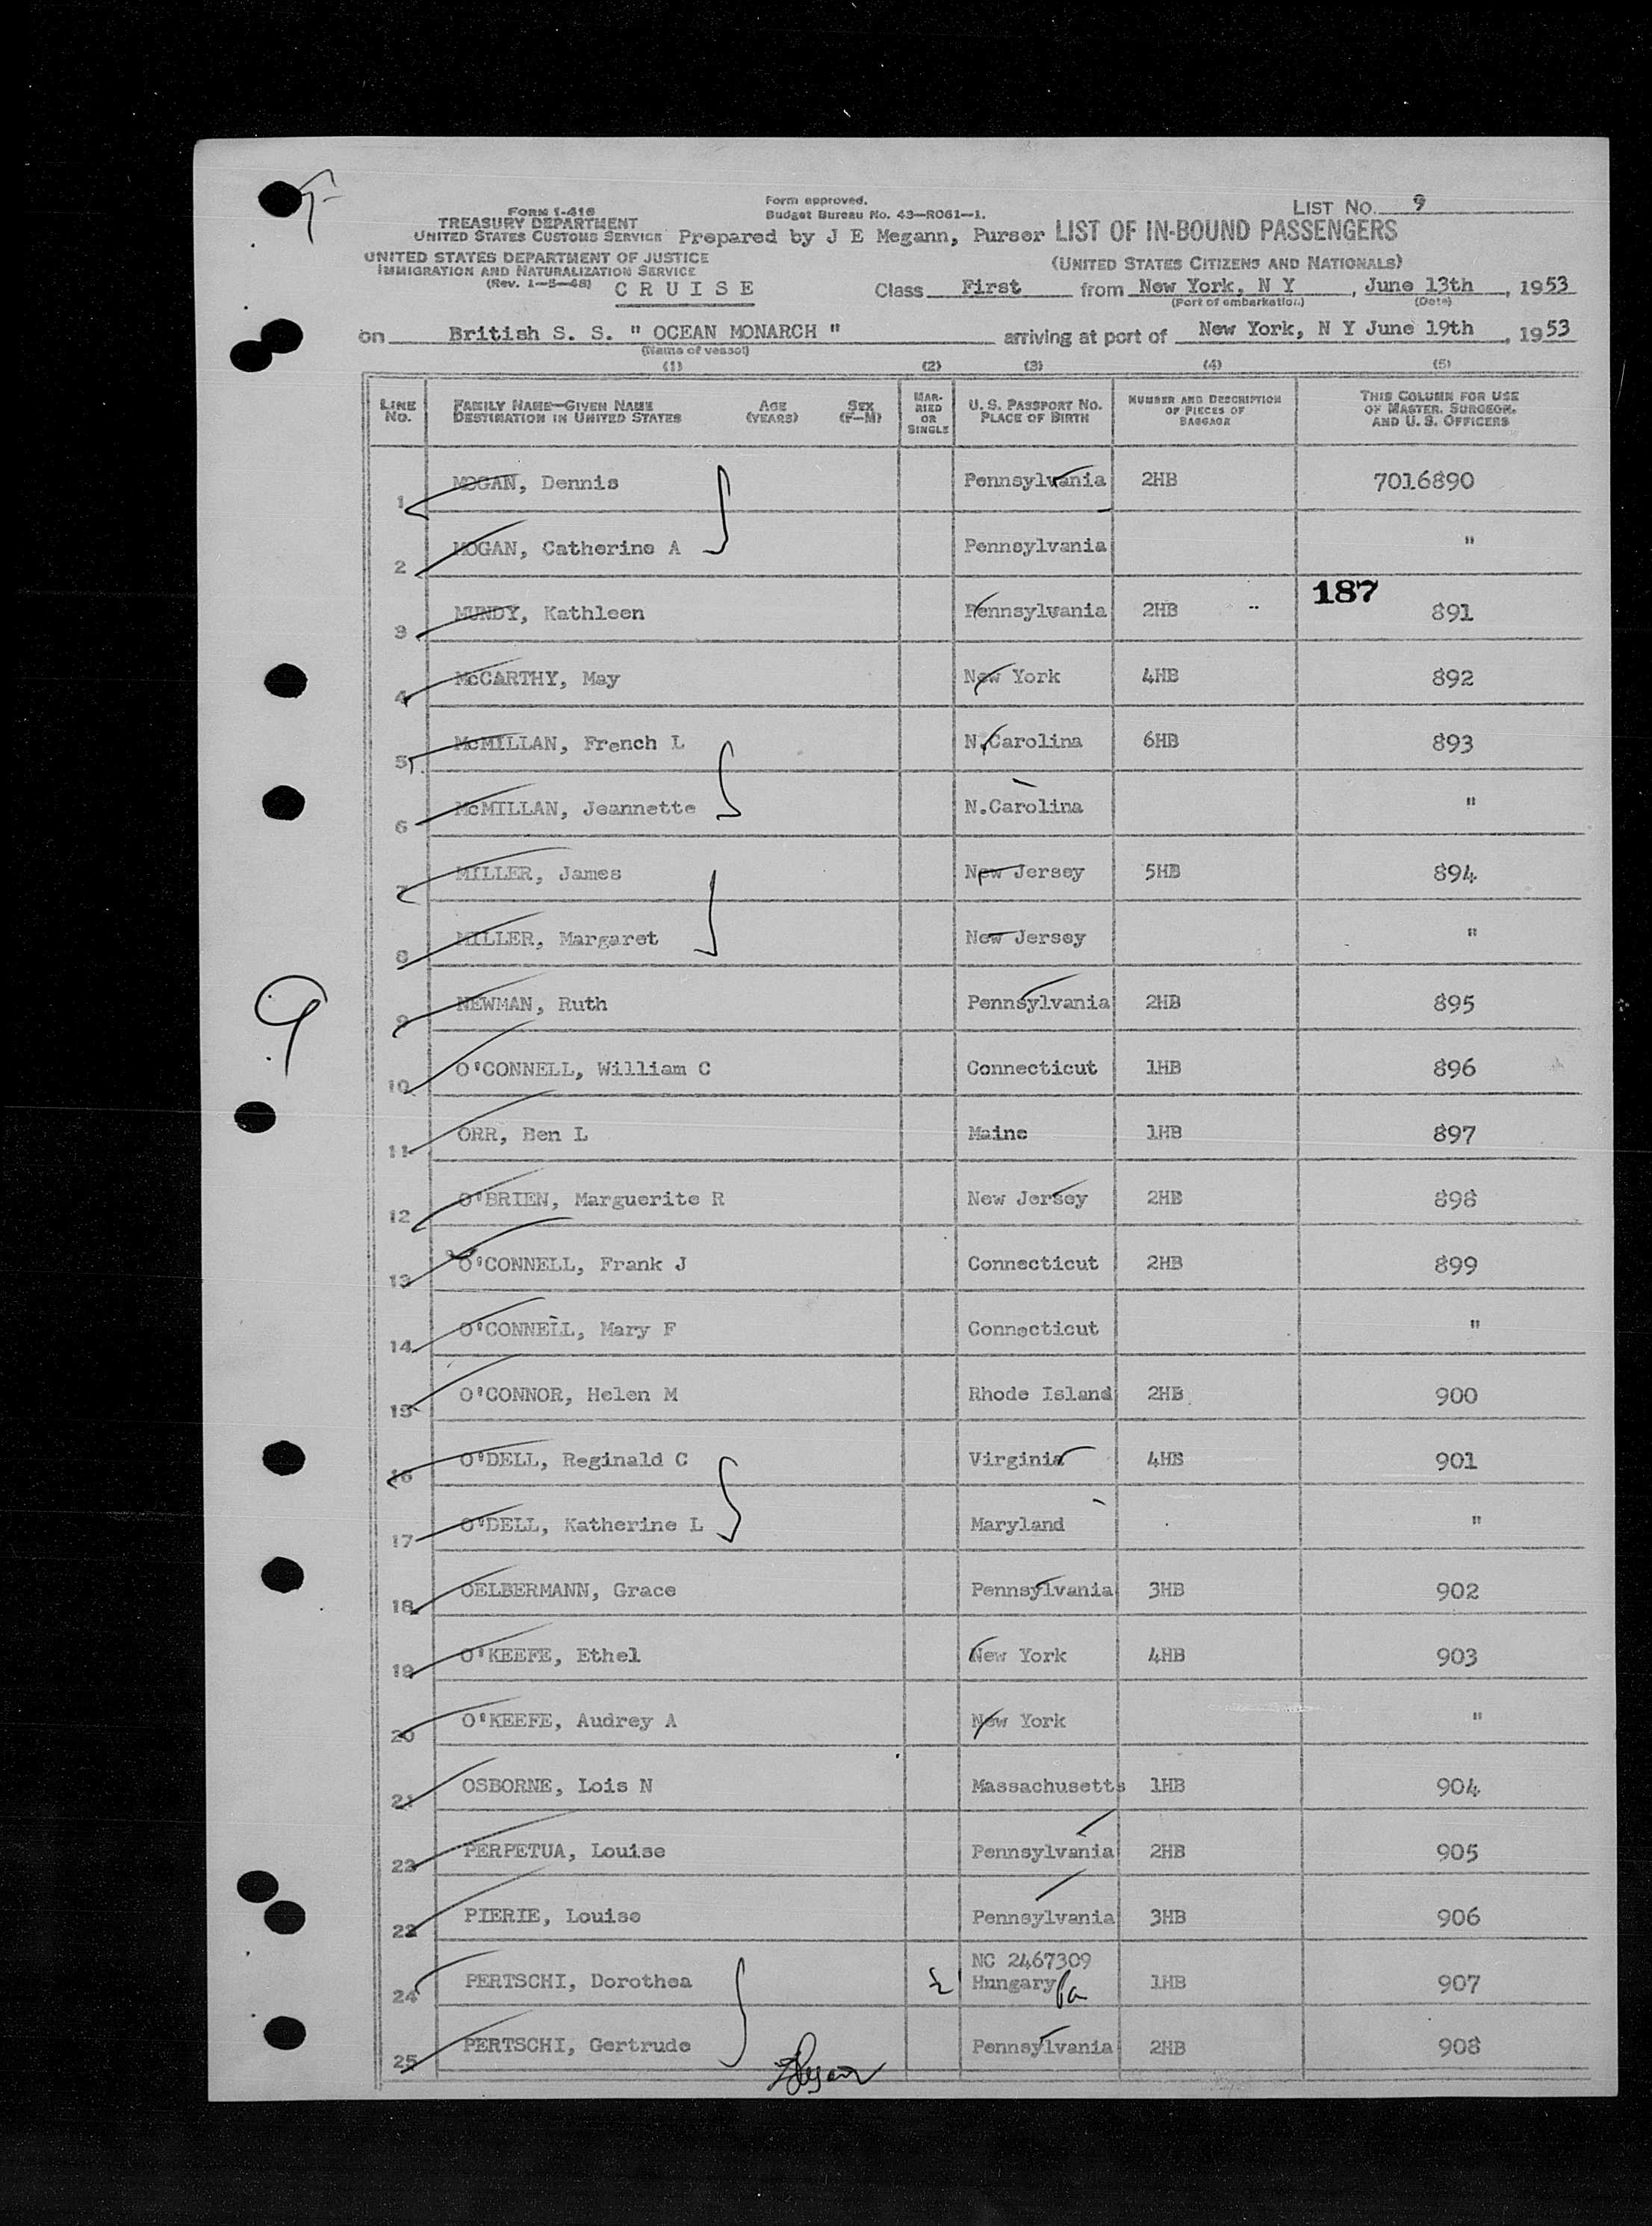 LIST NO. 9
FORM I-416
TREASURY DEPARTMENT
UNITED STATES CUSTOMS SERVICE
Form approved.
Budget Bureau No. 43—R061—1.
Prepared by J E Megann, Purser
LIST OF IN-BOUND PASSENGERS
UNITED STATES DEPARTMENT OF JUSTICE
IMMIGRATION AND NATURALIZATION SERVICE
(Rev. 1—5—48)
(UNITED STATES CITIZENS AND NATIONALS)
CRUISE
Class First from New York, N Y, June 13th, 1953
(Port of embarkation) (Date)
on British S. S. " OCEAN MONARCH " arriving at port of New York, N Y June 19th, 1953
(Name of vessel)
(1) (2) (3) (4) (5)
LINE NO.
FAMILY NAME—GIVEN NAME
DESTINATION IN UNITED STATES
AGE (YEARS)
SEX (F—M)
MARRIED OR SINGLE
U. S. PASSPORT NO.
PLACE OF BIRTH
NUMBER AND DESCRIPTION OF PIECES OF BAGGAGE
THIS COLUMN FOR USE OF MASTER, SURGEON, AND U. S. OFFICERS
1 MOGAN, Dennis Pennsylvania 2HB 7016890
2 MOGAN, Catherine A Pennsylvania "
187
3 MUNDY, Kathleen Pennsylvania 2HB 891
4 McCARTHY, May New York 4HB 892
5 McMILLAN, French L N.Carolina 6HB 893
6 McMILLAN, Jeannette N.Carolina "
7 MILLER, James New Jersey 5HB 894
8 MILLER, Margaret New Jersey "
9
9 NEWMAN, Ruth Pennsylvania 2HB 895
10 O'CONNELL, William C Connecticut 1HB 896
11 ORR, Ben L Maine 1HB 897
12 O'BRIEN, Marguerite R New Jersey 2HB 898
13 O'CONNELL, Frank J Connecticut 2HB 899
14 O'CONNELL, Mary F Connecticut "
15 O'CONNOR, Helen M Rhode Island 2HB 900
16 O'DELL, Reginald C Virginia 4HB 901
17 O'DELL, Katherine L Maryland "
18 OELBERMANN, Grace Pennsylvania 3HB 902
19 O'KEEFE, Ethel New York 4HB 903
20 O'KEEFE, Audrey A New York "
21 OSBORNE, Lois N Massachusetts 1HB 904
22 PERPETUA, Louise Pennsylvania 2HB 905
23 PIERIE, Louise Pennsylvania 3HB 906
NC 2467309
24 PERTSCHI, Dorothea Hungary Pa 1HB 907
25 PERTSCHI, Gertrude Pennsylvania 2HB 908